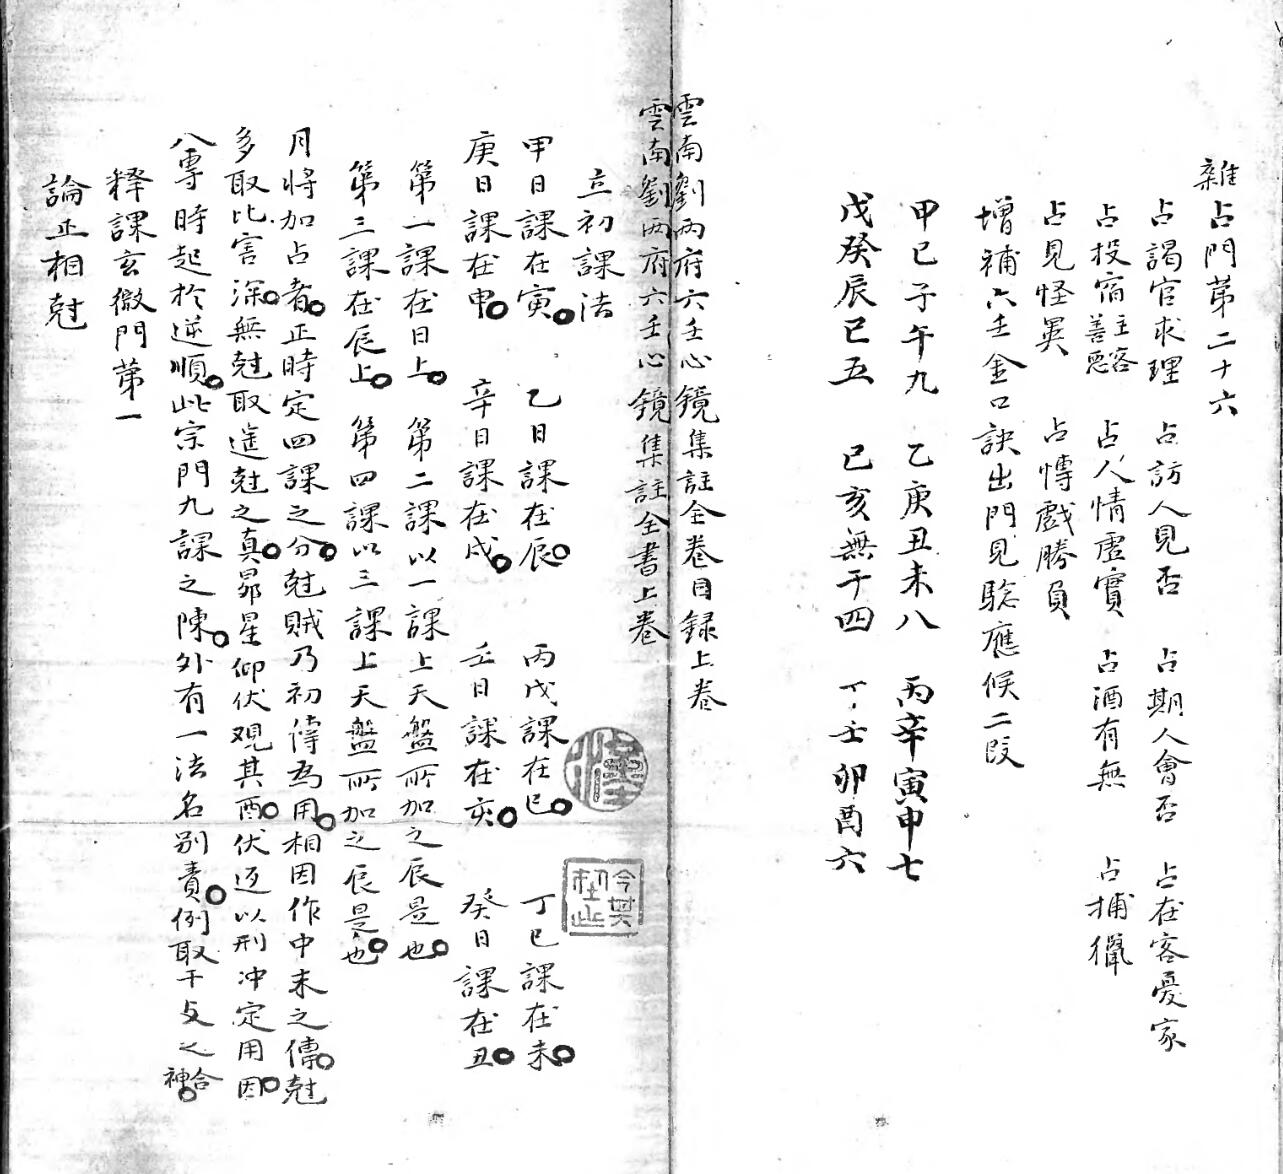 雜占門苐二十六
占謁官求理 占訪人見否 占期人會否 占在客憂家
占投宿善惡主客 占人情虛實 占酒有無 占捕獵
占見怪異 占愽戲勝負
增補六壬金口訣出門見騐應候二段
甲己子午九 乙庚丑未八 丙辛寅申七
戊癸辰巳五 巳亥無干四 丁壬卯酉六
雲南劉兩府六壬心鏡集註全卷目録上卷
雲南劉兩府六壬心鏡集註全書上卷
立初課法
甲日課在寅 乙日課在辰 丙戊課在巳 丁己課在未
庚日課在申 辛日課在戌 壬日課在亥 癸日課在丑
第一課在日上 第二課以一課上天盤所加之辰是也
第三課在辰上 第四課以三課上天盤所加之辰是也
月將加占者正時定四課之分尅賊乃初傳為用相因作中末之傳尅
多取比害深無尅取遥尅之真昴星仰伏观其酉伏返以刑冲定用因
八專時起於逆順此宗門九課之陳外有一法名别責例取干支之神合
釋課玄微門苐一
論正相尅